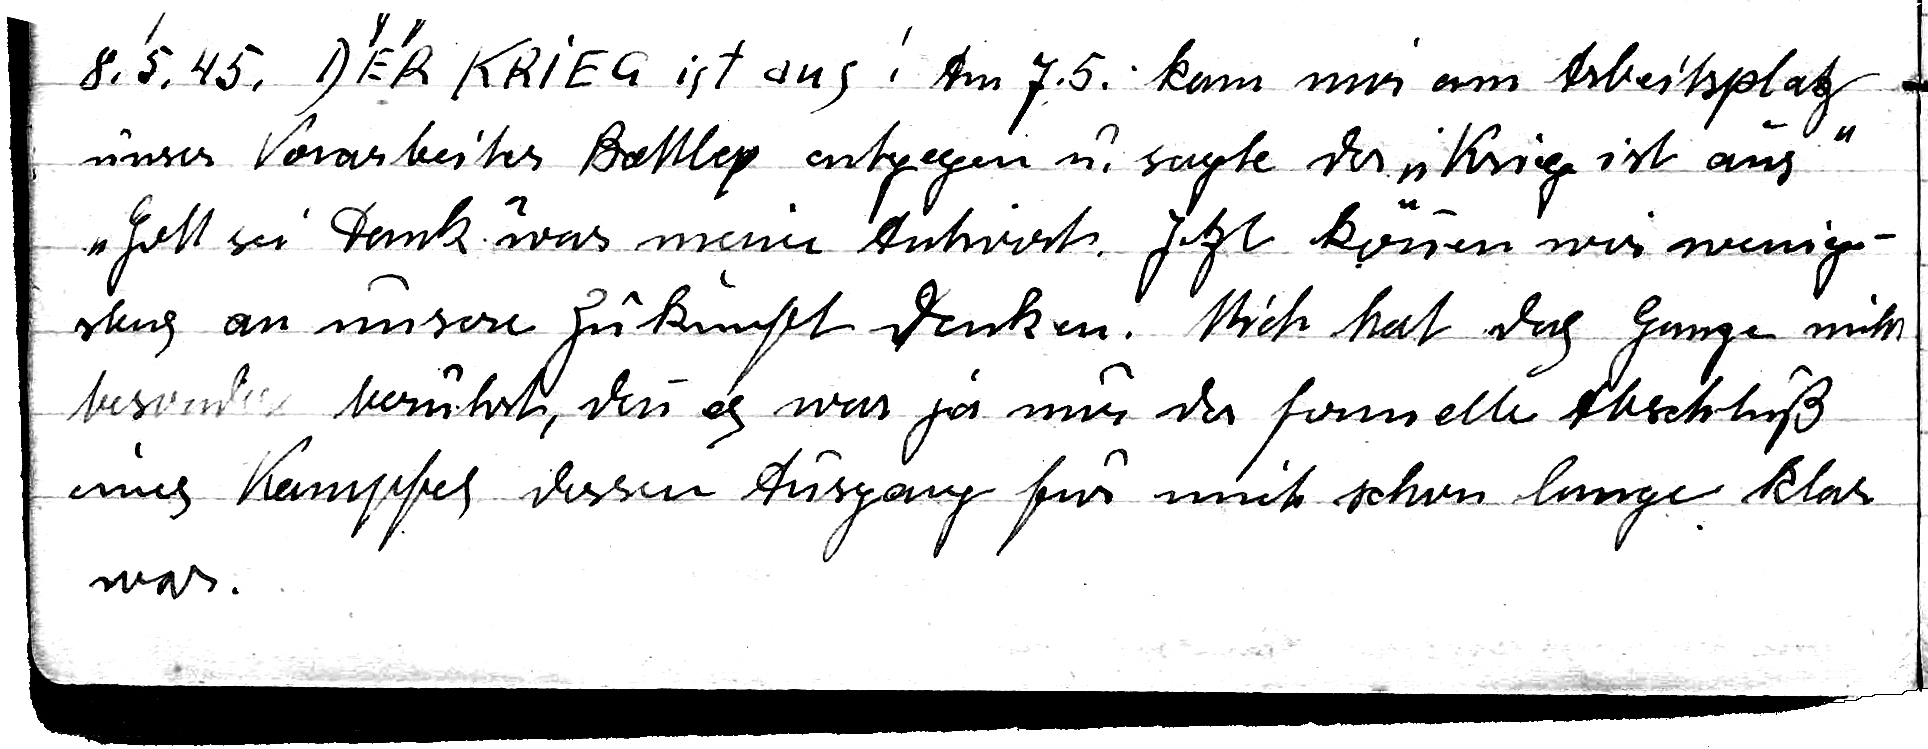 8.5.45. DER KRIEG ist aus! Am 7.5. kam mir am Arbeitsplatz
unser Vorarbeiter entgegen u. sagte der „Krieg ist aus"
„Gott sei Dank" war meine Antwort. Jetzt können wir wenig-
stens an unsere Zukunft denken. Mich hat das Ganze nicht
besonders berührt, den̄ es war ja nur der formelle Abschluß
eines Kampfes dessen Ausgang für mich schon lange klar
war.